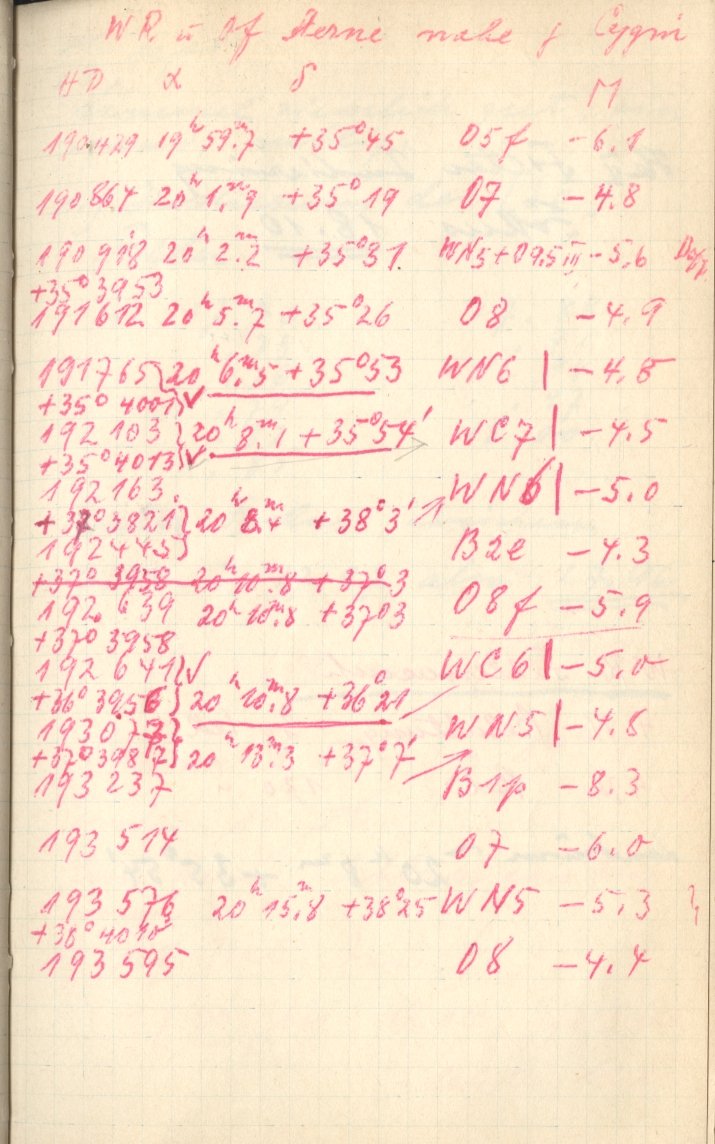 WR u Of Sterne nahe γ Cygni
HD α δ M
190429 19ʰ59ᵐ.7 +35°45 O5f -6.1
190864 20ʰ1ᵐ.9 +35°19 O7 -4.8
190918 20ʰ2ᵐ.2 +35°31 WN5+O9.5III -5.6
+35°3953
191612 20ʰ5ᵐ.7 +35°26 O8 -4.9
191765 20ʰ6ᵐ.5 +35°53 WN6 | -4.8
+35°4001 ✓
192103 20ʰ8ᵐ.1 +35°54' WC7 | -4.5
+35°4013 ✓
192163 WN6 | -5.0
+37°3821 20ʰ8ᵐ.4 +38°3'
192445 B2e -4.3
+37°3958 20ʰ10ᵐ.8 +37°3
192639 20ʰ10ᵐ.8 +37°3 O8f -5.9
+37°3958
192641 ✓ WC6 | -5.0
+36°3956 20ʰ10ᵐ.8 +36°21
193077 WN5 | -4.8
+37°3987 20ʰ13ᵐ.3 +37°7'
193237 B1p -8.3
193514 O7 -6.0
193576 20ʰ15ᵐ.8 +38°25 WN5 -5.3
+38°4010
193595 O8 -4.4